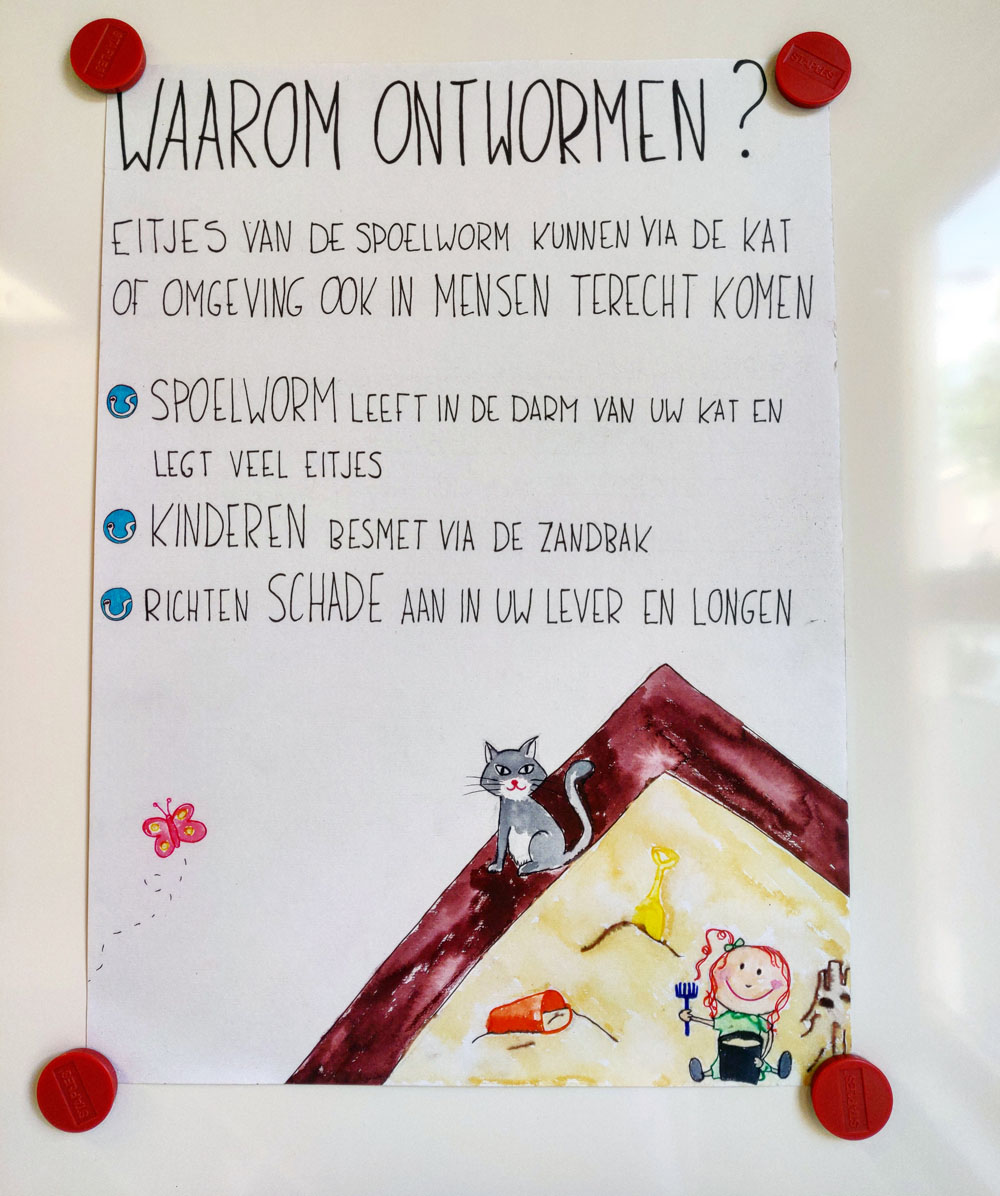 WAAROM ONTWORMEN ?
EITJES VAN DE SPOELWORM KUNNEN VIA DE KAT
OF OMGEVING OOK IN MENSEN TERECHT KOMEN
SPOELWORM LEEFT IN DE DARM VAN UW KAT EN
LEGT VEEL EITJES
KINDEREN BESMET VIA DE ZANDBAK
RICHTEN SCHADE AAN IN UW LEVER EN LONGEN
STAPLES
STAPLES
STAPLES
STAPLES